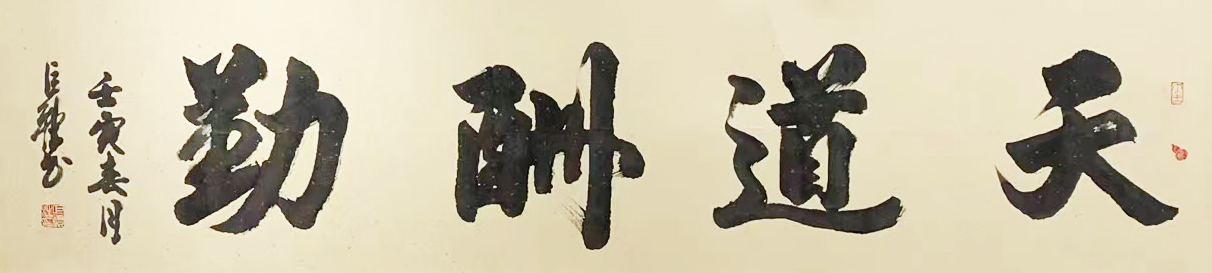 天道酬勤
壬寅春月